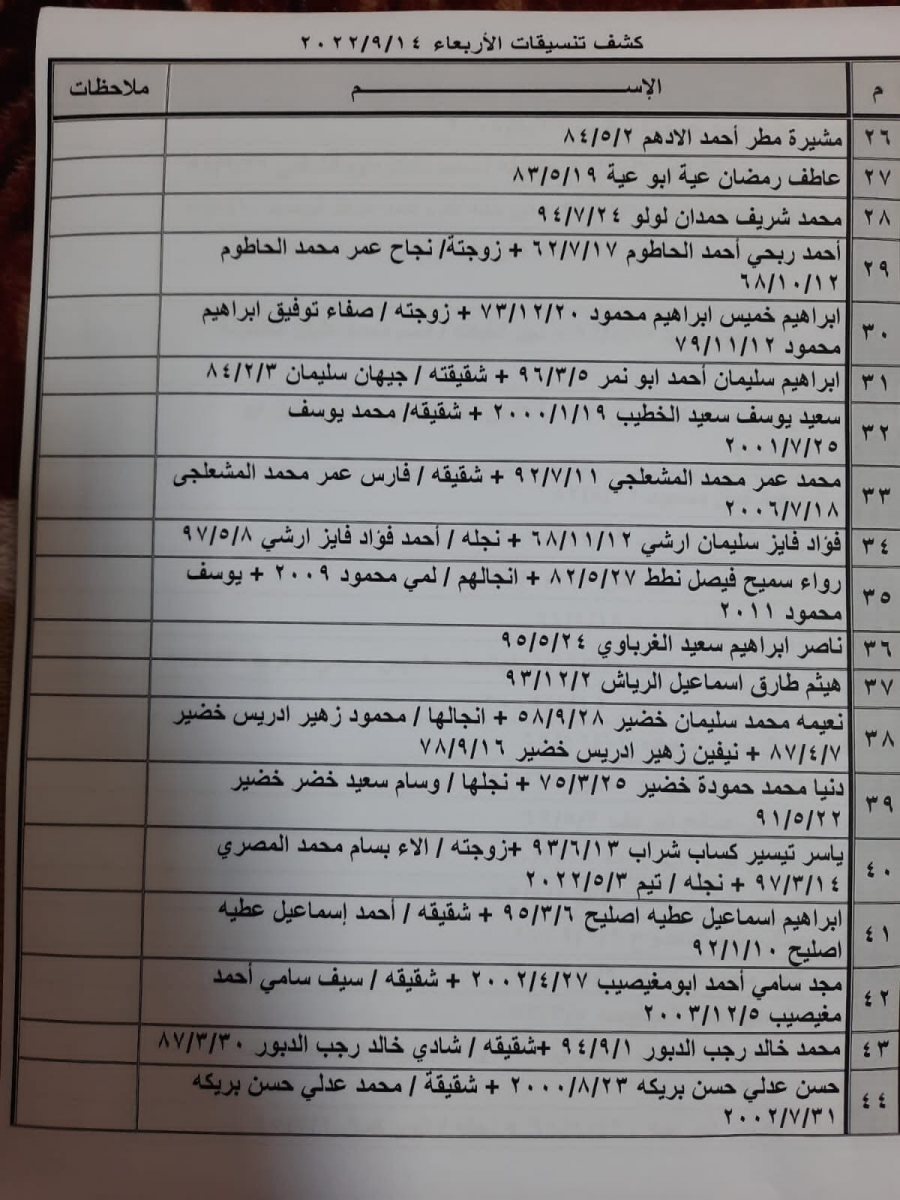 كشف تنسيقات الأربعاء ٢٠٢٢/٩/١٤
م الإســـــــــــــــــم ملاحظات
٢٦ مشيرة مطر أحمد الادهم ٨٤/٥/٢
٢٧ عاطف رمضان عية ابو عية ٨٣/٥/١٩
٢٨ محمد شريف حمدان لولو ٩٤/٧/٢٤
٢٩ أحمد ربحي أحمد الحاطوم ٦٢/٧/١٧ + زوجتة/ نجاح عمر محمد الحاطوم
٦٨/١٠/١٢
٣٠ ابراهيم خميس ابراهيم محمود ٧٣/١٢/٢٠ + زوجته / صفاء توفيق ابراهيم
محمود ٧٩/١١/١٢
٣١ ابراهيم سليمان أحمد ابو نمر ٩٦/٣/٥ + شقيقته / جيهان سليمان ٨٤/٢/٣
٣٢ سعيد يوسف سعيد الخطيب ٢٠٠٠/١/١٩ + شقيقه/ محمد يوسف
٢٠٠١/٧/٢٥
٣٣ محمد عمر محمد المشعلجي ٩٢/٧/١١ + شقيقه / فارس عمر محمد المشعلجى
٢٠٠٦/٧/١٨
٣٤ فؤاد فايز سليمان ارشي ٦٨/١١/١٢ + نجله / أحمد فؤاد فايز ارشي ٩٧/٥/٨
٣٥ رواء سميح فيصل نطط ٨٢/٥/٢٧ + انجالهم / لمي محمود ٢٠٠٩ + يوسف
محمود ٢٠١١
٣٦ ناصر ابراهيم سعيد الغرباوي ٩٥/٥/٢٤
٣٧ هيثم طارق اسماعيل الرياش ٩٣/١٢/٢
٣٨ نعيمه محمد سليمان خضير ٥٨/٩/٢٨ + انجالها / محمود زهير ادريس خضير
٨٧/٤/٧ + نيفين زهير ادريس خضير ٧٨/٩/١٦
٣٩ دنيا محمد حمودة خضير ٧٥/٣/٢٥ + نجلها / وسام سعيد خضر خضير
٩١/٥/٢٢
٤٠ ياسر تيسير كساب شراب ٩٣/٦/١٣ +زوجته / الاء بسام محمد المصري
٩٧/٣/١٤ + نجله / تيم ٢٠٢٢/٥/٣
٤١ ابراهيم اسماعيل عطيه اصليح ٩٥/٣/٦ + شقيقه / أحمد إسماعيل عطيه
اصليح ٩٢/١/١٠
٤٢ مجد سامي أحمد ابومغيصيب ٢٠٠٢/٤/٢٧ + شقيقه / سيف سامي أحمد
مغيصيب ٢٠٠٣/١٢/٥
٤٣ محمد خالد رجب الدبور ٩٤/٩/١ +شقيقه / شادي خالد رجب الدبور ٨٧/٣/٣٠
٤٤ حسن عدلي حسن بريكه ٢٠٠٠/٨/٢٣ + شقيقة / محمد عدلي حسن بريكه
٢٠٠٢/٧/٣١